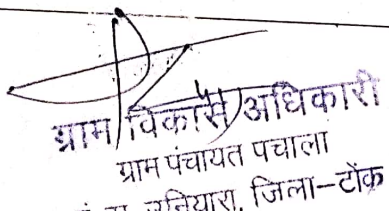 ग्राम विकास अधिकारी
ग्राम पंचायत पचाला
जिला-टोंक